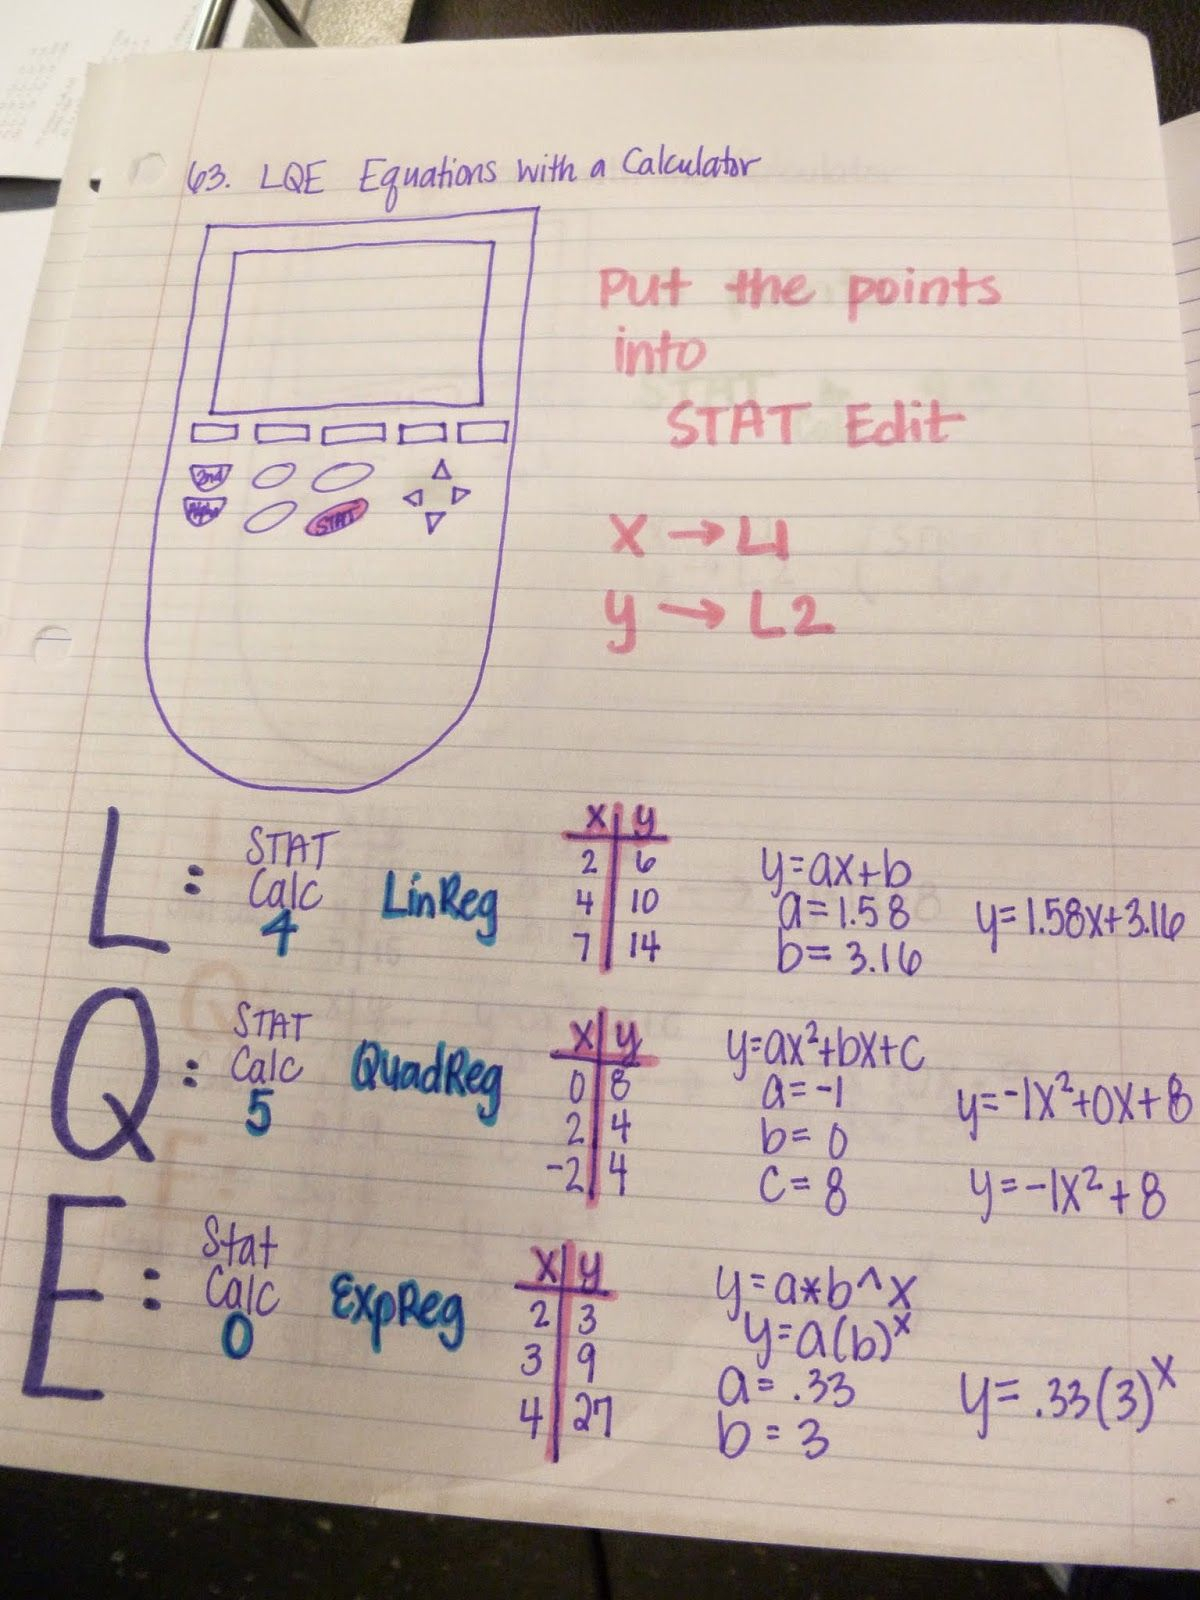 63. LQE Equations with a Calculator
Put the points
into
STAT Edit
2nd
Alpha
STAT
x → L1
y → L2
L :
STAT
Calc
4
LinReg
x y
2 6
4 10
7 14
y=ax+b
a=1.58
b= 3.16
y=1.58x+3.16
Q :
STAT
Calc
5
QuadReg
x y
0 8
2 4
-2 4
y=ax²+bx+c
a=-1
b= 0
c= 8
y=-1x²+0x+8
y=-1x²+8
E :
Stat
Calc
0
ExpReg
x y
2 3
3 9
4 27
y=a*b^x
y=a(b)ˣ
a= .33
b = 3
y= .33(3)ˣ